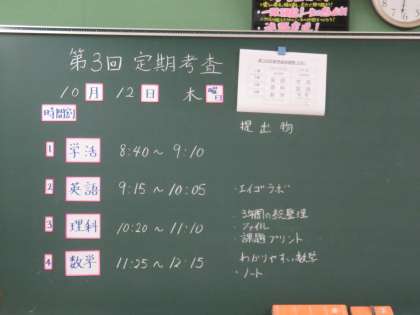 第3回 定期考査
10 月 12 日 木 曜日
時間割
提出物
1 学活 8:40～9:10
2 英語 9:15～10:05 ・エイゴラボ
3 理科 10:20～11:10 ・3年間の総整理
・ファイル
・課題プリント
4 数学 11:25～12:15 わかりやすい数学
・ノート